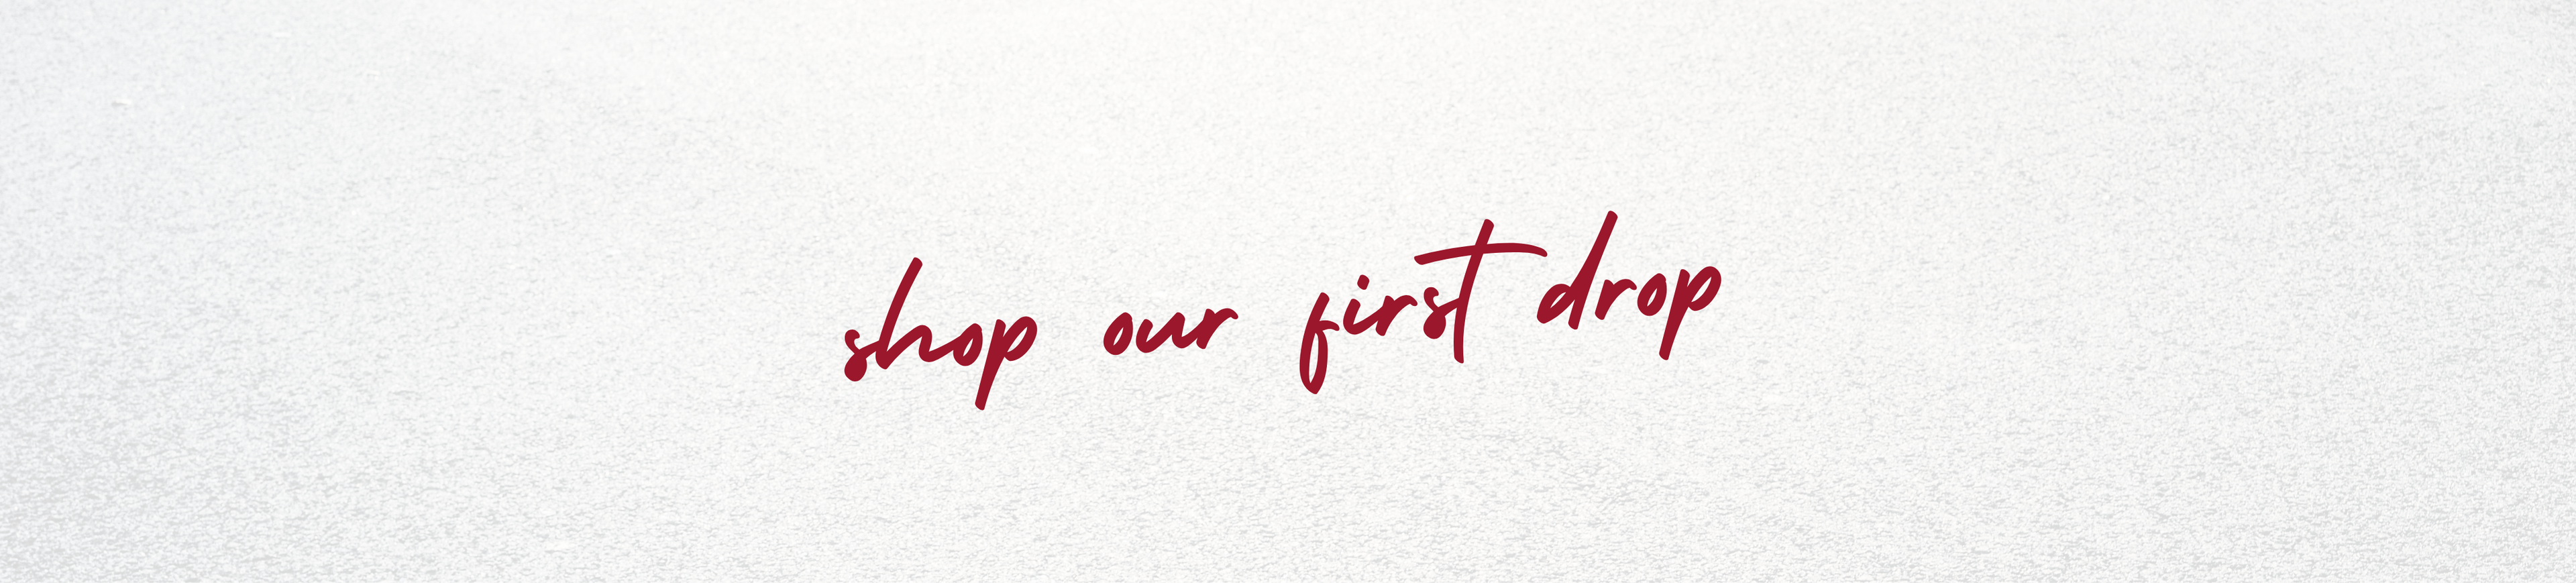 shop our first drop